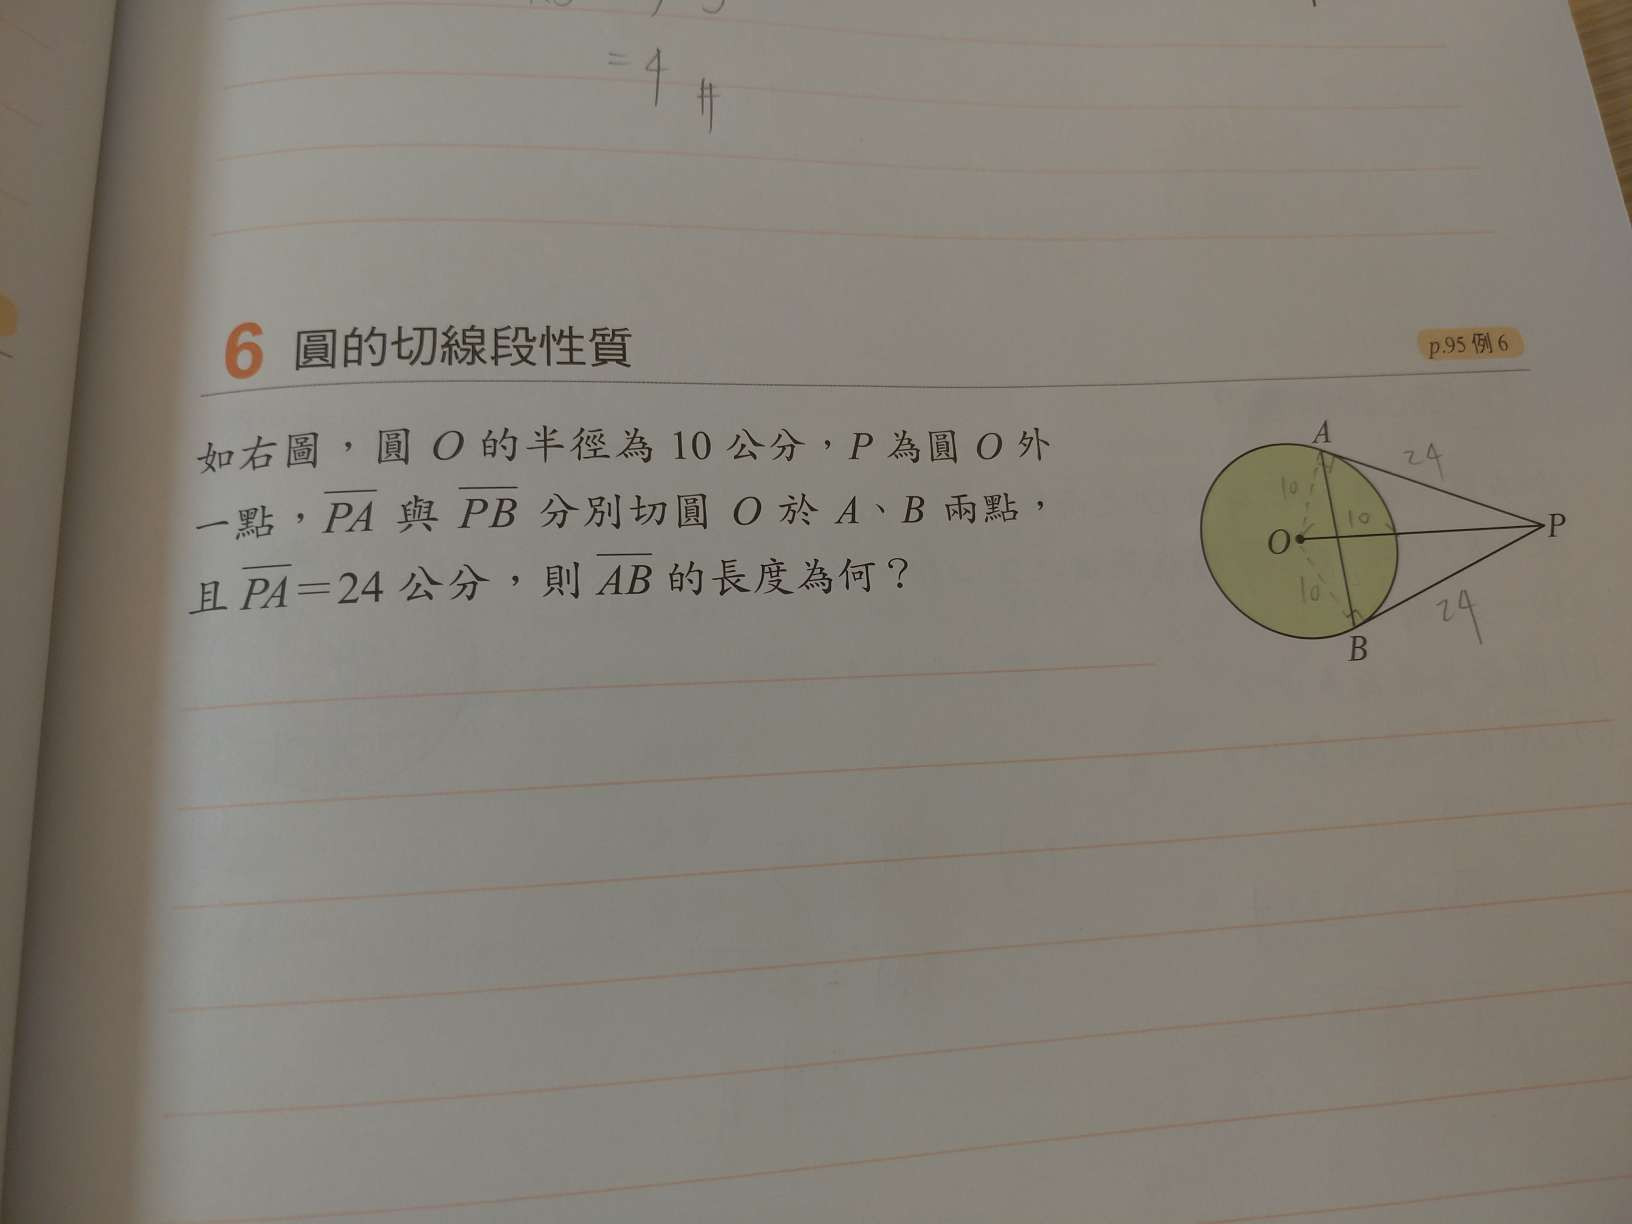 = 4 #
6 圓的切線段性質
p.95 例 6
如右圖，圓 O 的半徑為 10 公分，P 為圓 O 外
一點，PA 與 PB 分別切圓 O 於 A、B 兩點，
且 PA＝24 公分，則 AB 的長度為何？
A
24
10
10
O
P
10
24
B